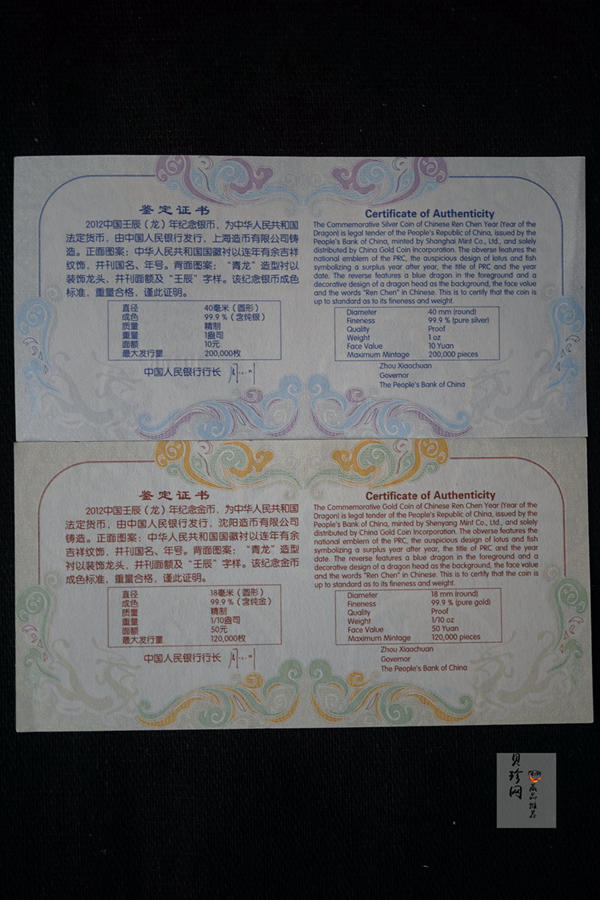 鉴定证书
2012中国壬辰（龙）年纪念银币，为中华人民共和国
法定货币，由中国人民银行发行，上海造币有限公司铸
造。正面图案：中华人民共和国国徽衬以连年有余吉祥
纹饰，并刊国名、年号。背面图案：“青龙”造型衬以
装饰龙头，并刊面额及“壬辰”字样。该纪念银币成色
标准，重量合格，谨此证明。
直径 40毫米（圆形）
成色 99.9％（含纯银）
质量 精制
重量 1盎司
面额 10元
最大发行量 200,000枚
中国人民银行行长
Certificate of Authenticity
The Commemorative Silver Coin of Chinese Ren Chen Year (Year of the
Dragon) is legal tender of the People's Republic of China, issued by the
People's Bank of China, minted by Shanghai Mint Co., Ltd., and solely
distributed by China Gold Coin Incorporation. The obverse features the
national emblem of the PRC, the auspicious design of lotus and fish
symbolizing a surplus year after year, the title of PRC and the year
date. The reverse features a blue dragon in the foreground and a
decorative design of a dragon head as the background, the face value
and the words "Ren Chen" in Chinese. This is to certify that the coin is
up to standard as to its fineness and weight.
Diameter 40 mm (round)
Fineness 99.9 % (pure silver)
Quality Proof
Weight 1 oz
Face Value 10 Yuan
Maximum Mintage 200,000 pieces
Zhou Xiaochuan
Governor
The People's Bank of China
鉴定证书
2012中国壬辰（龙）年纪念金币，为中华人民共和国
法定货币，由中国人民银行发行，沈阳造币有限公司
铸造。正面图案：中华人民共和国国徽衬以连年有余
吉祥纹饰，并刊国名、年号。背面图案：“青龙”造型
衬以装饰龙头，并刊面额及“壬辰”字样。该纪念金币
成色标准，重量合格，谨此证明。
直径 18毫米（圆形）
成色 99.9％（含纯金）
质量 精制
重量 1/10盎司
面额 50元
最大发行量 120,000枚
中国人民银行行长
Certificate of Authenticity
The Commemorative Gold Coin of Chinese Ren Chen Year (Year of the
Dragon) is legal tender of the People's Republic of China, issued by the
People's Bank of China, minted by Shenyang Mint Co., Ltd., and solely
distributed by China Gold Coin Incorporation. The obverse features the
national emblem of the PRC, the auspicious design of lotus and fish
symbolizing a surplus year after year, the title of PRC and the year
date. The reverse features a blue dragon in the foreground and a
decorative design of a dragon head as the background, the face value
and the words "Ren Chen" in Chinese. This is to certify that the coin is
up to standard as to its fineness and weight.
Diameter 18 mm (round)
Fineness 99.9 % (pure gold)
Quality Proof
Weight 1/10 oz
Face Value 50 Yuan
Maximum Mintage 120,000 pieces
Zhou Xiaochuan
Governor
The People's Bank of China
贝珍网
藏品推荐